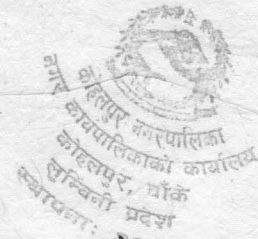 कोहलपुर नगरपालिका
नगर कार्यपालिकाको कार्यालय
कोहलपुर, बाँके
लुम्बिनी प्रदेश
स्थापना: